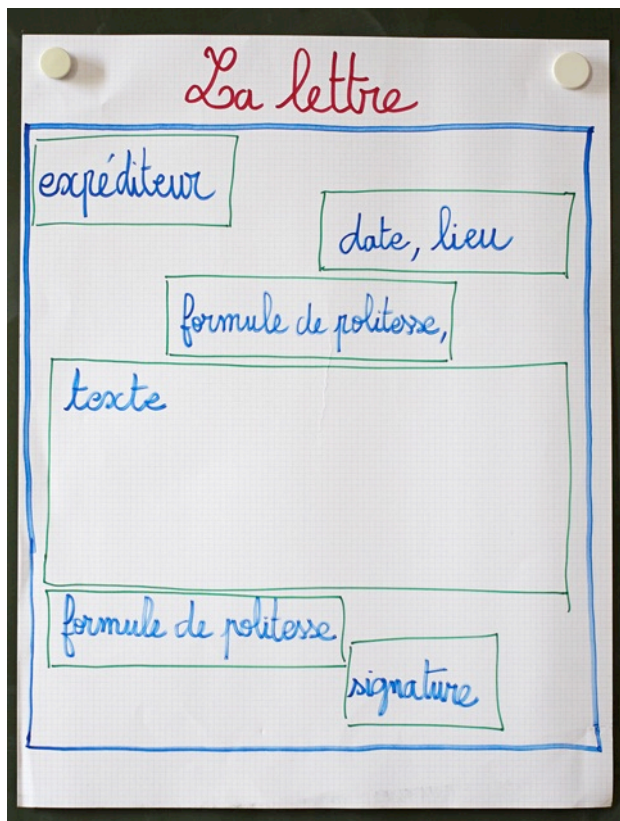 La lettre
expéditeur
date, lieu
formule de politesse,
texte
formule de politesse
signature